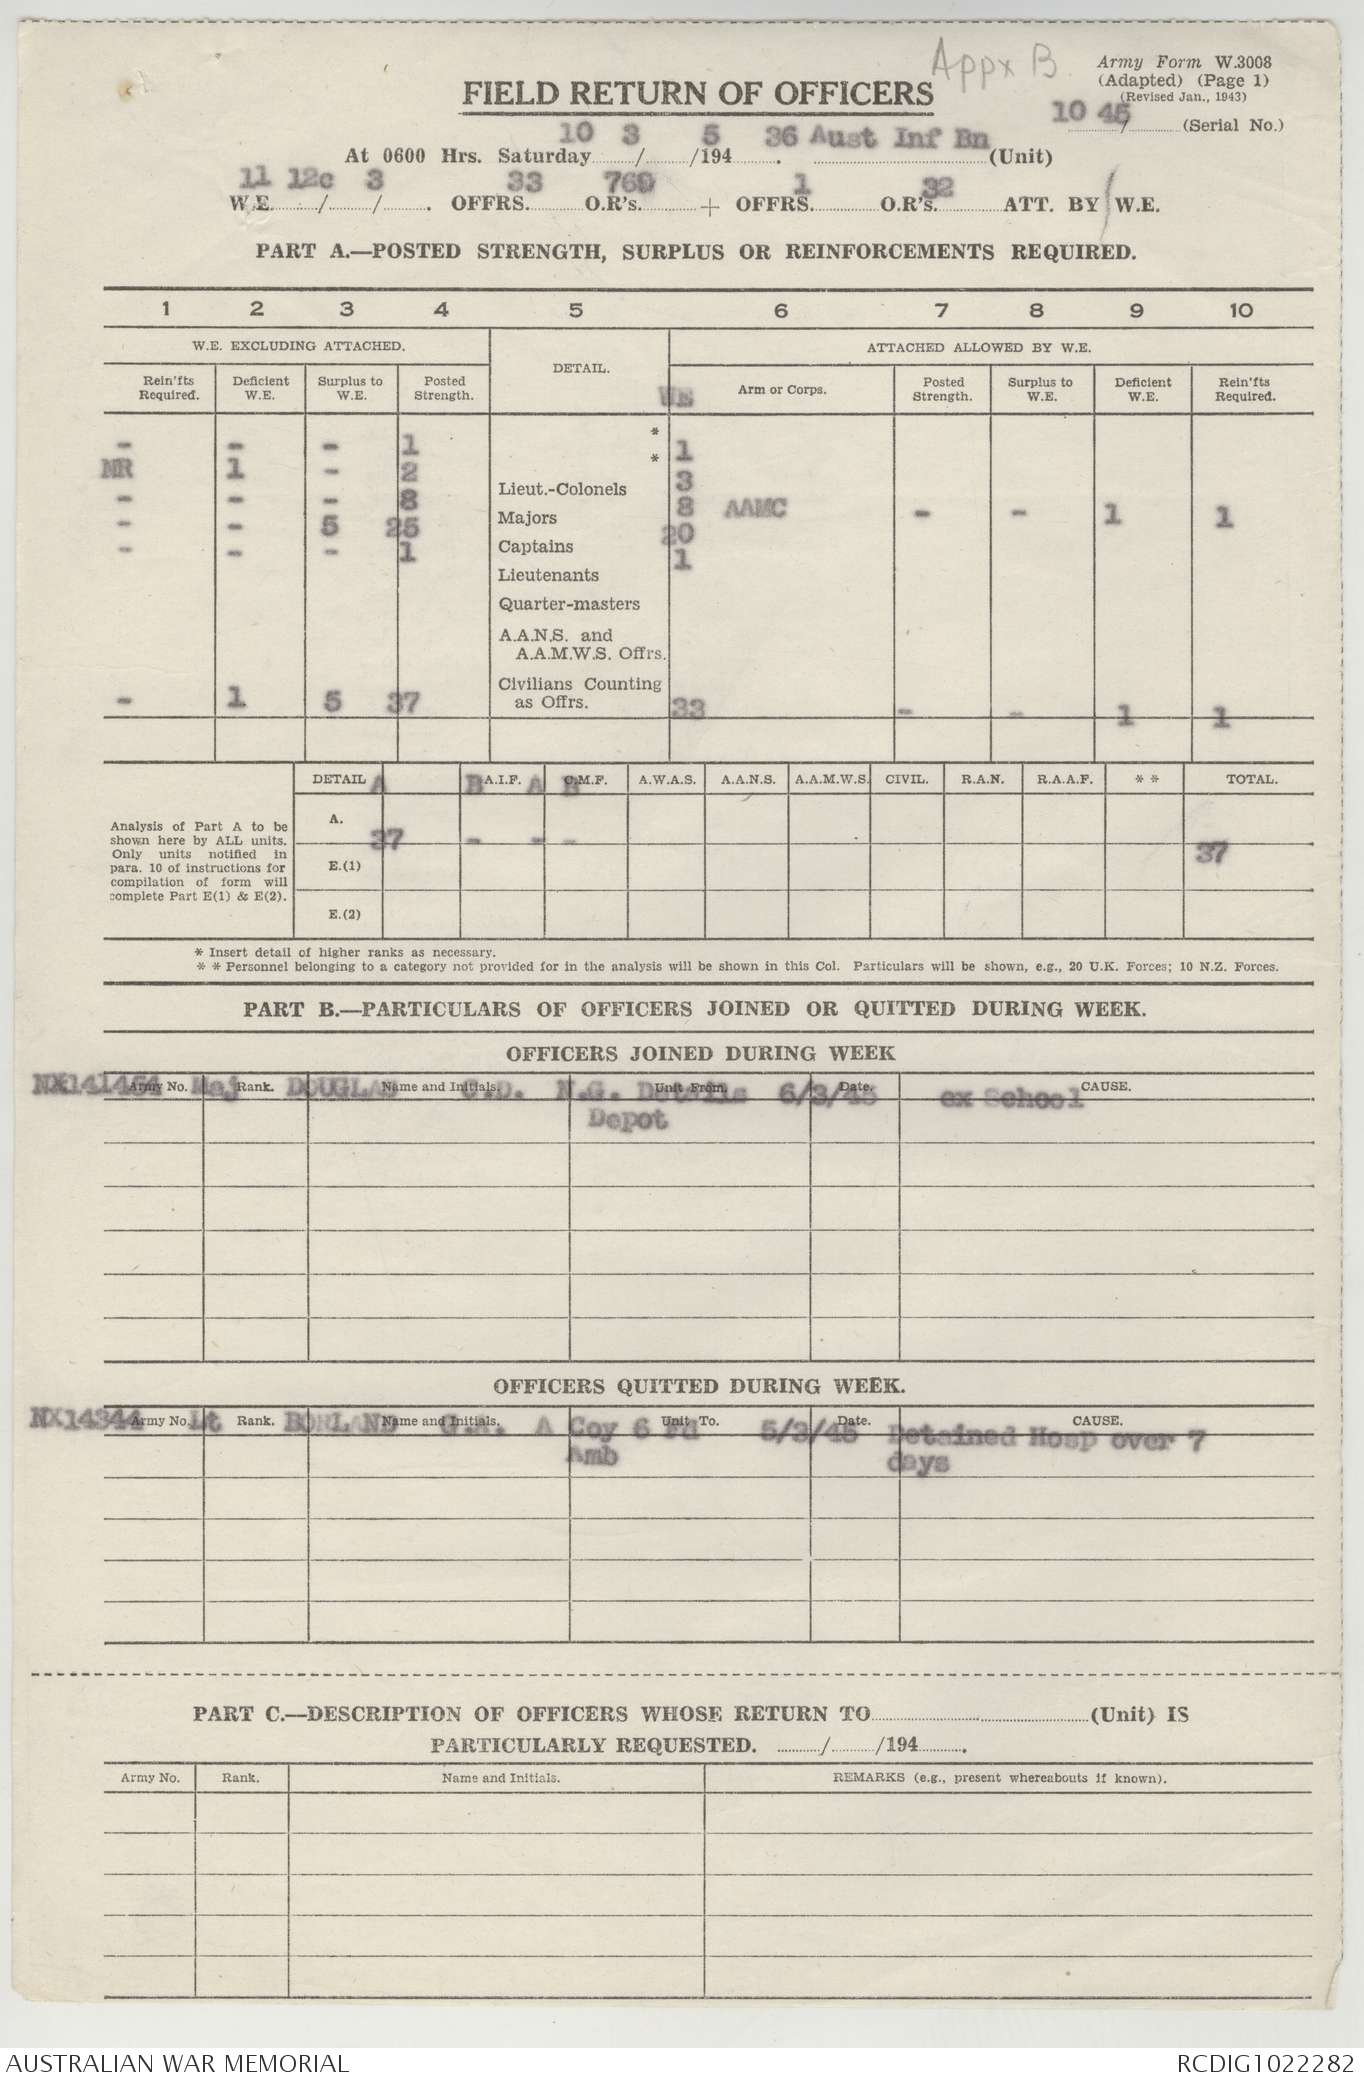 Appx B
Army Form W.3008
(Adapted) (Page 1)
(Revised Jan., 1943)
FIELD RETURN OF OFFICERS
10 / 45 (Serial No.)
At 0600 Hrs. Saturday 10 / 3 /194 5 . 36 Aust Inf Bn (Unit)
W.E. 11 / 12c / 3 . OFFRS. 33 O.R's. 769 + OFFRS. 1 O.R's. 32 ATT. BY W.E.
PART A.—POSTED STRENGTH, SURPLUS OR REINFORCEMENTS REQUIRED.
1 2 3 4 5 6 7 8 9 10
W.E. EXCLUDING ATTACHED. DETAIL. ATTACHED ALLOWED BY W.E.
Rein'fts Required. Deficient W.E. Surplus to W.E. Posted Strength. WE Arm or Corps. Posted Strength. Surplus to W.E. Deficient W.E. Rein'fts Required.
*
- - - 1 * 1
NR 1 - 2 Lieut.-Colonels 3
- - - 8 Majors 8 AAMC - - 1 1
- - 5 25 Captains 20
- - - 1 Lieutenants 1
Quarter-masters
A.A.N.S. and
A.A.M.W.S. Offrs.
Civilians Counting
as Offrs.
- 1 5 37 33 - - 1 1
DETAIL A B A.I.F. A B C.M.F. A.W.A.S. A.A.N.S. A.A.M.W.S. CIVIL. R.A.N. R.A.A.F. * * TOTAL.
Analysis of Part A to be
shown here by ALL units.
Only units notified in
para. 10 of instructions for
compilation of form will
complete Part E(1) & E(2).
A. 37 - - - 37
E.(1)
E.(2)
* Insert detail of higher ranks as necessary.
* * Personnel belonging to a category not provided for in the analysis will be shown in this Col. Particulars will be shown, e.g., 20 U.K. Forces; 10 N.Z. Forces.
PART B.—PARTICULARS OF OFFICERS JOINED OR QUITTED DURING WEEK.
OFFICERS JOINED DURING WEEK
Army No. Rank. Name and Initials. Unit From. Date. CAUSE.
NX141464 Maj DOUGLAS C.D. N.G. Details 6/3/45 ex School
Depot
OFFICERS QUITTED DURING WEEK.
Army No. Rank. Name and Initials. Unit To. Date. CAUSE.
NX14344 Lt BORLAND G.A. A Coy 6 Fd 5/3/45 Detained Hosp over 7
Amb days
PART C.—DESCRIPTION OF OFFICERS WHOSE RETURN TO (Unit) IS
PARTICULARLY REQUESTED. / /194 .
Army No. Rank. Name and Initials. REMARKS (e.g., present whereabouts if known).
AUSTRALIAN WAR MEMORIAL RCDIG1022282